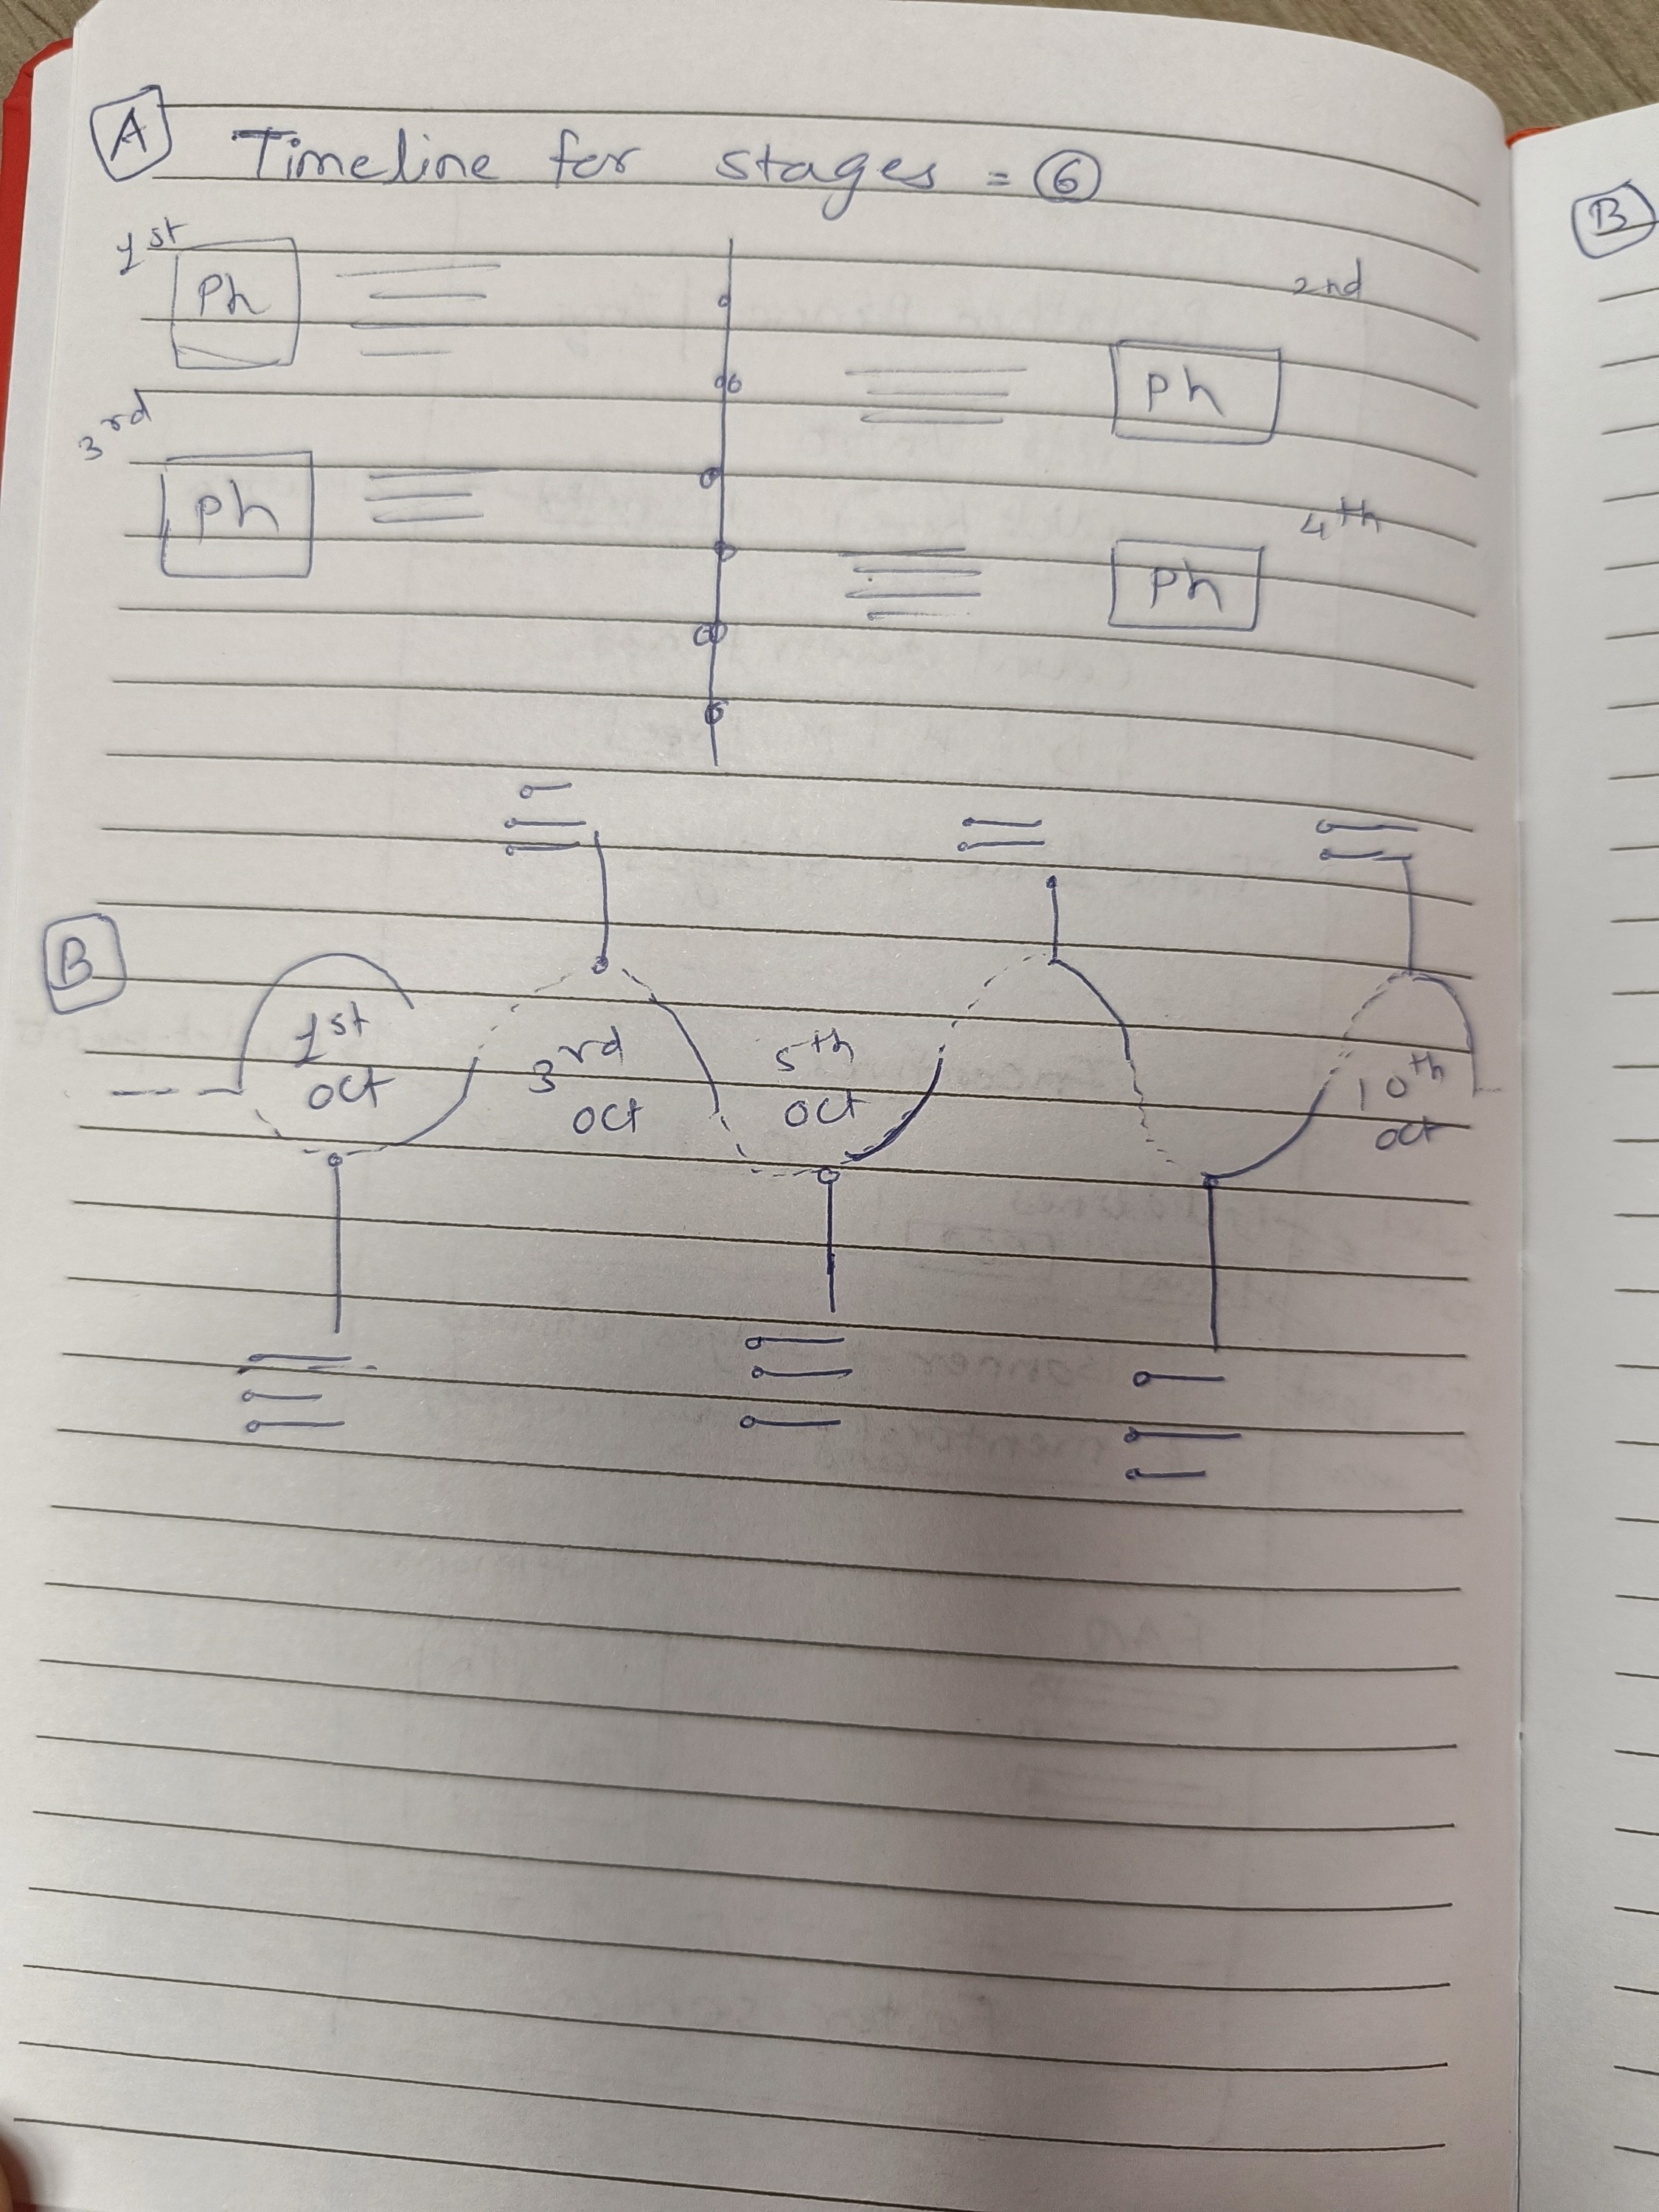 A Timeline for stages = 6
1st
Ph
2nd
Ph
3rd
Ph
4th
Ph
B
1st
oct
3rd
oct
5th
oct
10th
oct
B